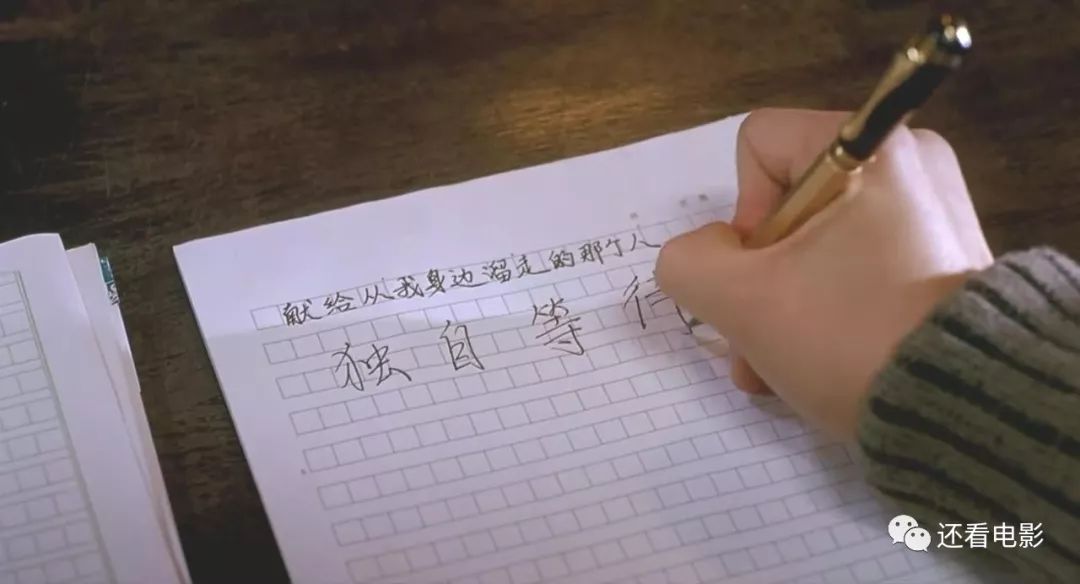 献给从我身边溜走的那个人
独自等待
还看电影